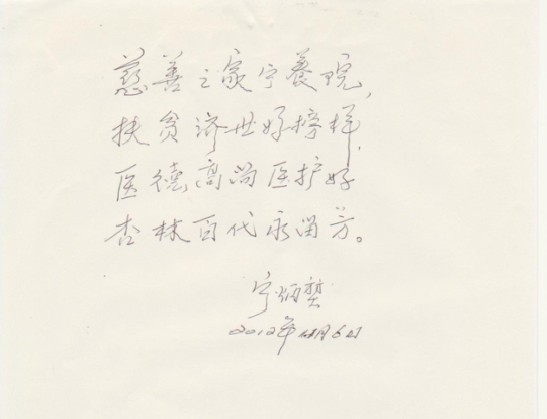 慈善之家宁養院,
扶贫济世好榜样.
医德高尚医护好
杏林百代永留芳。
宁炳
2012年 月6日